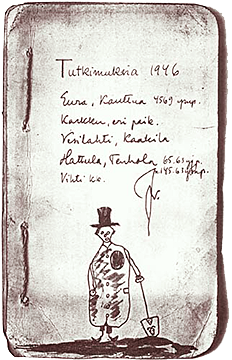 Tutkimuksia 1946
Eura, Kautua 4569 ynp.
Karkku, eri paik.
Vesilahti, Kaakila
Hattula, Tenhola 65.63
Vihti kk.